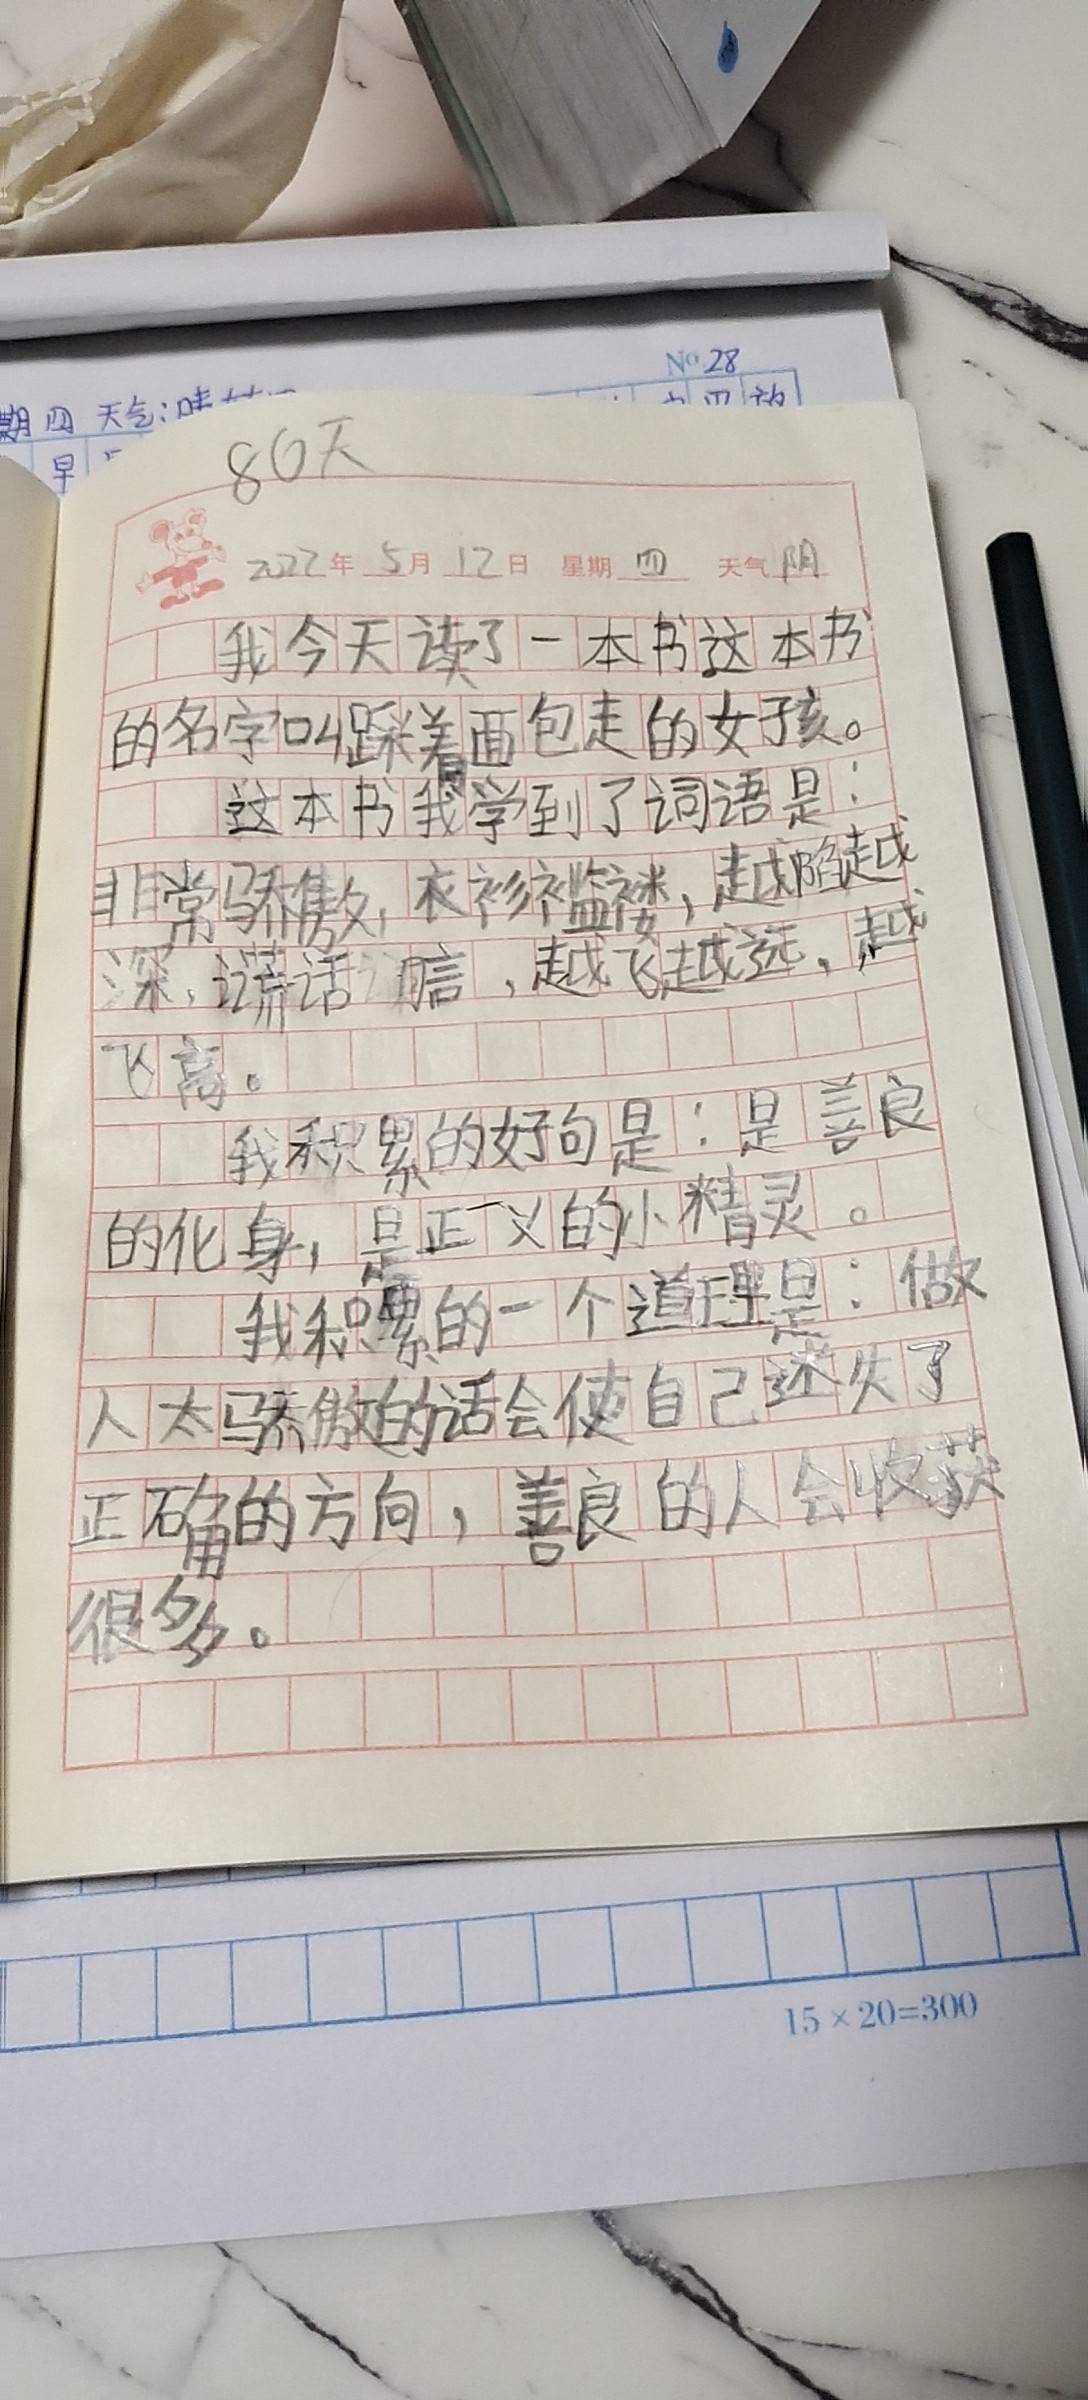 No 28
期四 天气:晴
早
80天
2022年 5月 12日 星期 四 天气 阴
我今天读了一本书这本书
的名字叫踩着面包走的女孩。
这本书我学到了词语是:
非常骄傲,衣衫褴褛,越陷越
深,谎话 言,越飞越远,越
飞高。
我积累的好句是:是善良
的化身,是正义的小精灵。
我积累的一个道理是:做
人太骄傲的话会使自己迷失了
正确的方向,善良的人会收获
很多。
15×20=300